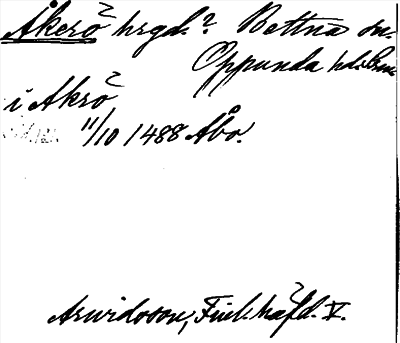 Åkerö hrgd? Bettna sn.
Oppunda hd.
i Akrö
11/10 1488 Åbo.
Arwidsson, Finl. häfd. V.